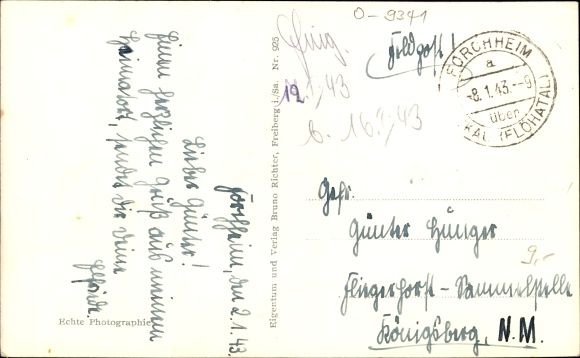 O-9341
Feldpost!
FORCHHEIM
a
-8.1.43.--9
über
(FLÖHATAL)
Nr. 925
Eigentum und Verlag Bruno Richter, Freiberg i./Sa.
43
b. 16.1.43
Forchheim, den 2.1.43.
Lieber Günter!
Einen herzlichen Gruß aus meinem
Heimatort, sendet dir deine
Elfriede.
Echte Photographie
Gefr.
Günter Hünger
Fliegerhorst-Sammelstelle
Königsberg, N.M.
9,-